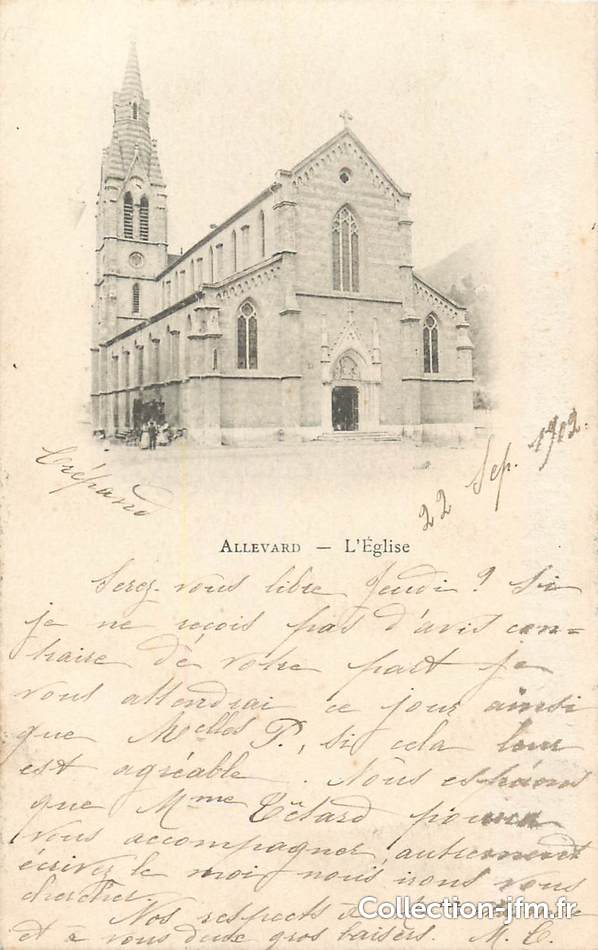 Crépand
22 Sep. 1912.
ALLEVARD — L'Église
Serez-vous libre Jeudi ? Si
je ne reçois pas d'avis con=
traire de votre part je
vous attendrai ce jour ainsi
que Melles P., si cela leur
est agréable. Nous espérons
que Mme Tétard pourra
vous accompagner, autrement
écrivez le moi nous irons vous
chercher.
Nos respects à
et à vous deux gros baisers. M. C.
Collection-jfm.fr